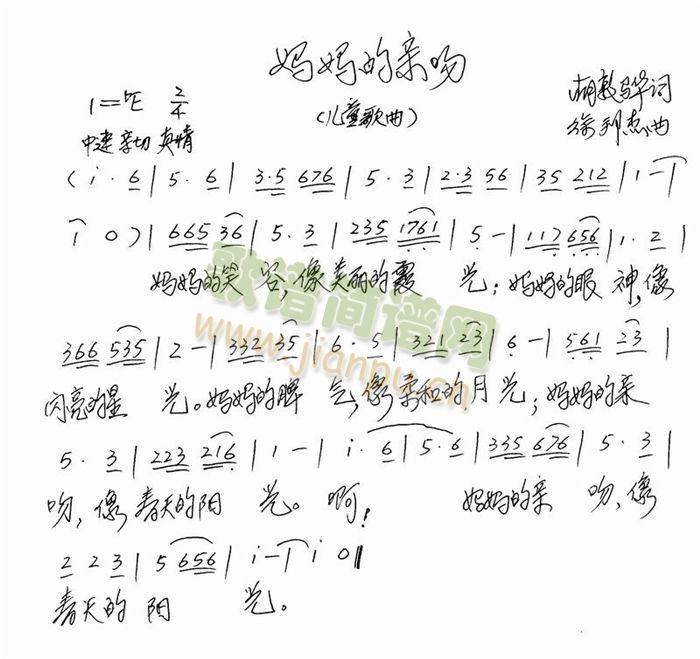 妈妈的亲吻
1=ᵇE 2/4
(儿童歌曲)
胡敦骅词
中速 亲切 真情
徐到杰曲
(i·6|5·6|3·5 676|5·3|2·3 56|35 212|1-|
1 0)|665 36|5·3|235 1761|5-|117 656|1·2|
妈妈的笑 容,像美丽的霞 光;妈妈的眼 神,像
366 535|2-|332 35|6·5|321 23|6-|561 23|
闪亮的星 光。妈妈的脾 气,像柔和的月光;妈妈的亲
5·3|223 216|1-|i·6|5·6|335 676|5·3|
吻,像春天的阳 光。啊! 妈妈的亲 吻,像
2 2 3|5 656|i-|i 0‖
春天的 阳 光。
歌谱简谱网
www.jianpu.cn